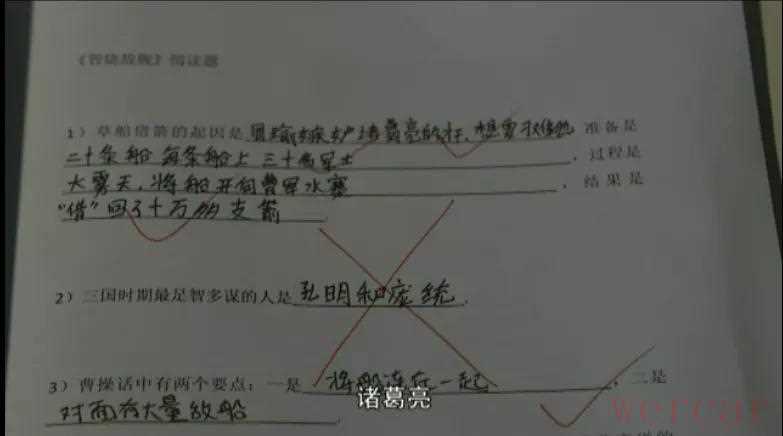 《智烧敌舰》阅读题
1）草船借箭的起因是 周瑜嫉妒诸葛亮的才，想害 ，准备是
二十条船 每条船上三十 军士 ，过程是
大雾天，将船开向曹军水寨 ，结果是
“借”回了十万多支箭
2）三国时期最足智多谋的人是 孔明和庞统．
3）曹操话中有两个要点：一是 将船连在一起 ，二是
对面有大量敌船
诸葛亮
wercar